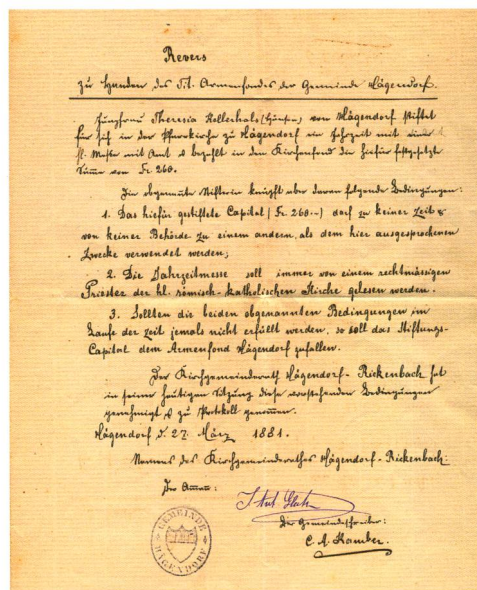 Revers
zu Handen des Tit. Armenfondes der Gemeinde Hägendorf.
Jungfrau Theresia Kellerhals von Hägendorf stiftet
für sich in der Pfarrkirche zu Hägendorf ein Jahrzeit mit
hl. Messe mit Amt & bezahlt in den Kirchenfond die hiefür festgesetzte
Summe von Fr. 260.
Die obgenannte Stifterin knüpft aber daran folgende Bedingungen:
1. Das hiefür gestiftete Capital (Fr. 260.--) darf zu keiner Zeit &
von keiner Behörde zu einem andern, als dem hier ausgesprochenen
Zwecke verwendet werden;
2. Die Jahrzeitmesse soll immer von einem rechtmässigen
Priester der hl. römisch-katholischen Kirche gelesen werden.
3. Sollten die beiden obgenannten Bedingungen im
Laufe der Zeit jemals nicht erfüllt werden, so soll das Stiftungs-
Capital dem Armenfond Hägendorf zufallen.
Der Kirchgemeinderath Hägendorf-Rickenbach hat
in seiner heutigen Sitzung diese vorstehenden Bedingungen
genehmigt & zu Protokoll genommen.
Hägendorf d. 27. März 1881.
Namens des Kirchgemeinderathes Hägendorf-Rickenbach:
Der Amman:
Der Gemeindeschreiber:
C. A. Kamber.
GEMEINDE
HÄGENDORF